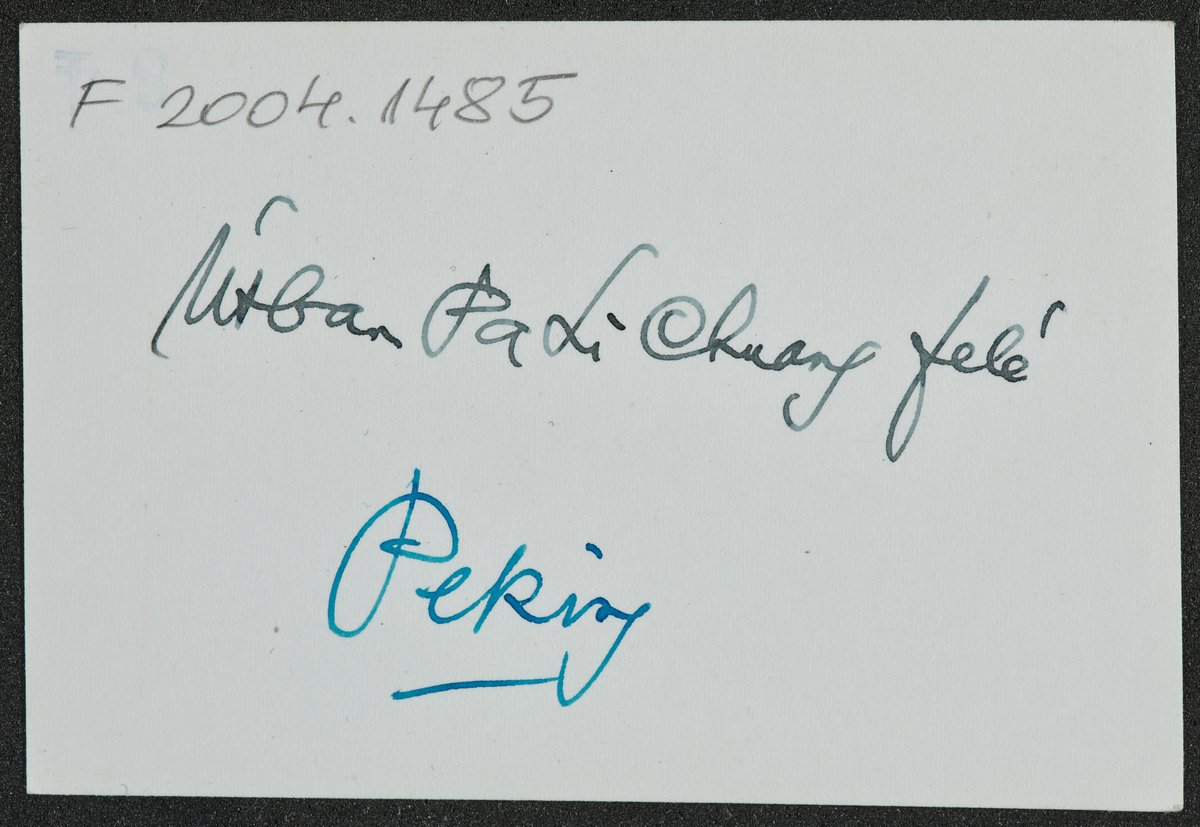 F 2004.1485
Útban Pa Li Chuang felé
Peking